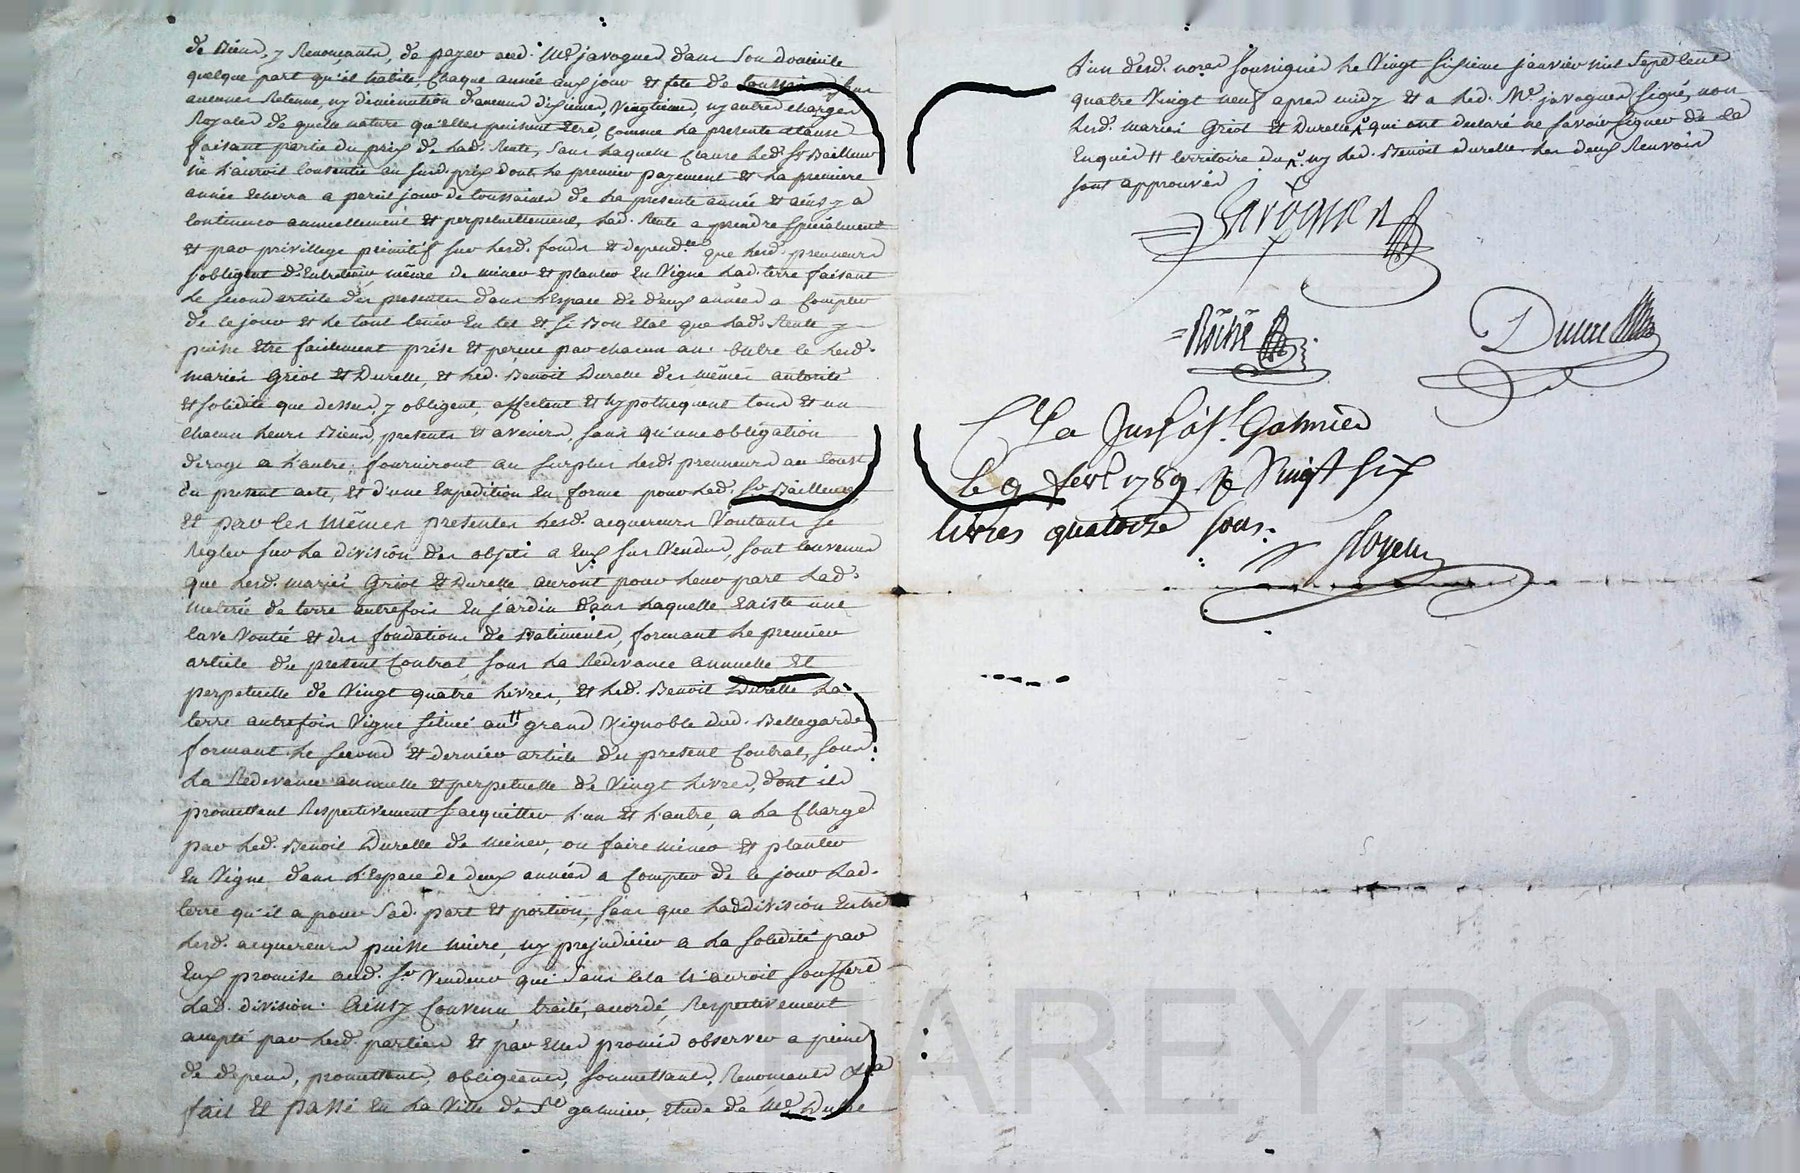 de Biens, y Renonçants, de payer aud. Me javogues dans son domicile
quelque part qu'il habite, Chaque année aux jour et fete de toussaint, sans
aucunes Retenue, ny diminution d'aucuns dixiemes, Vingtiemes, ny autres charges
Royales de quelle nature qu'elles puissent etre, Comme la presente clause
faisant partie du prix de lad. Rente, sans laquelle Clause led. Sr Bailleur
ne l'auroit consentie au susd. prix dont le premier payement et la premiere
année echerra a pareil jour de toussaint de la presente année et ainsy a
continuer annuellement et perpetuellement, lad. Rente a prendre specialement
et par privillege primitif sur lesd. fonds et depend.ces que lesd. preneurs
s'obligent d'Entretenir, même de miner et planter En Vigne lad. terre faisant
le second article des presentes dans l'Espace de deux années a Compter
de ce jour et le tout tenir En tel et si Bon Etat que lad. Rente y
puisse etre facilement prise et perçue par chacun an. Outre ce lesd.
mariés Griot et Durelle, et led. Benoit Durelle des mêmes autorité
et solidité que dessus, y obligent, affectent et hypothequent tous et un
chacun leurs Biens, presents et avenirs, sans qu'une obligation
deroge a l'autre; fourniront au surplus lesd. preneurs au coust
du present acte, et d'une Expedition En forme pour led. Sr Bailleur,
et par les mêmes presentes lesd. acquereurs Voulants se
Regler sur la division des objets a Eux sus Vendus, sont convenus
que lesd. mariés Griot et Durelle auront pour leur part lad.
meterée de terre autrefois En jardin dans laquelle Existe une
cave Voutée et des fondations de Batiments, formant le premier
article du present Contrat, sous la Redevance annuelle et
perpetuelle de Vingt quatre livres, et led. Benoit Durelle la
terre autrefois Vigne située au # grand Vignoble dud. Bellegarde
formant le second et dernier article du present Contrat, sous
la Redevance annuelle et perpetuelle de Vingt livres, dont ils
promettent Respectivement s'acquitter l'un et l'autre, a la Charge
par led. Benoit Durelle de miner, ou faire miner et planter
En Vigne dans l'Espace de deux années a Compter de ce jour lad.
terre qu'il a pour Sad. part et portion, sans que lad division Entre
lesd. acquereurs puisse nuire, ny prejudicier a la solidité par
Eux promise aud. Sr Vendeur qui sans cela n'auroit souffert
lad. division. Ainsy Convenu, traité, accordé, Respectivement
accepté par lesd. parties et par Elles promis observer a peine
de depens, promettants, obligeants, soumettants, Renonçants &a
fait et passé En la Ville de St galmier, etude de Me Dulac
l'un desd. nores soussignés le Vingt sixieme janvier mil sept cent
quatre Vingt neuf apres midy et a led. Me javogues signé, non
lesd. mariés Griot et Durelle, qui ont declaré ne savoir signer de ce
Enquis # territoire du ny led. Benoit Durelle les deux Renvois
sont approuvés
Javogues
Dulac
St Galmier
le 9 fevr 1789 Vingt six
livres quatorze sous.
CHAREYRON